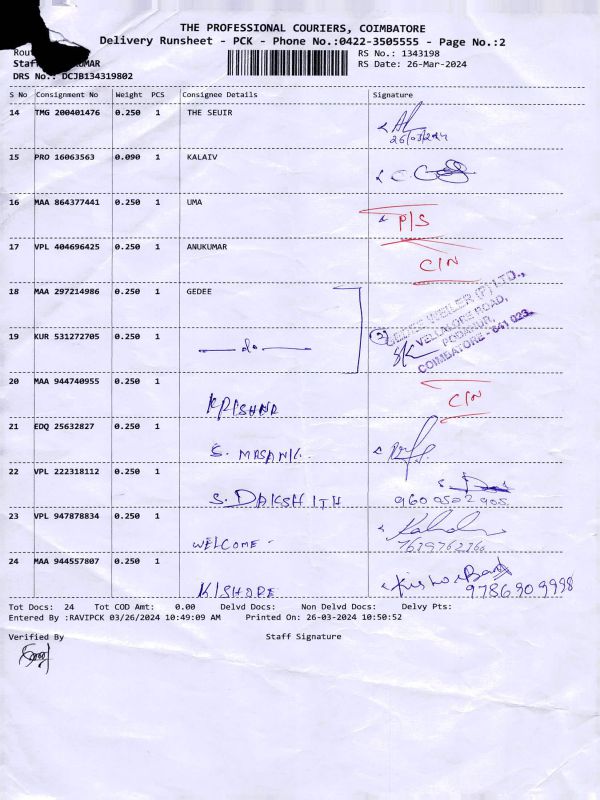 THE PROFESSIONAL COURIERS, COIMBATORE
Delivery Runsheet - PCK - Phone No.:0422-3505555 - Page No.:2
RS No.: 1343198
RS Date: 26-Mar-2024
DRS No.: DCJB134319802
S No Consignment No Weight PCS Consignee Details Signature
14 TMG 200401476 0.250 1 THE SEUIR
26/03/2024
15 PRO 16063563 0.090 1 KALAIV
16 MAA 864377441 0.250 1 UMA
P/S
17 VPL 404696425 0.250 1 ANUKUMAR
C/N
18 MAA 297214986 0.250 1 GEDEE
GEDEE WEILER (P) LTD.,
VELLALORE ROAD,
PODANUR,
COIMBATORE - 641 023.
19 KUR 531272705 0.250 1 —do—
20 MAA 944740955 0.250 1 KRISHNA
C/N
21 EDQ 25632827 0.250 1 S. MASANI..
22 VPL 222318112 0.250 1 S. DAKSHITH
9600502905
23 VPL 947878834 0.250 1 WELCOME -
7639762766
24 MAA 944557807 0.250 1 KISHORE
9786909998
Tot Docs: 24 Tot COD Amt: 0.00 Delvd Docs: Non Delvd Docs: Delvy Pts:
Entered By :RAVIPCK 03/26/2024 10:49:09 AM Printed On: 26-03-2024 10:50:52
Verified By Staff Signature